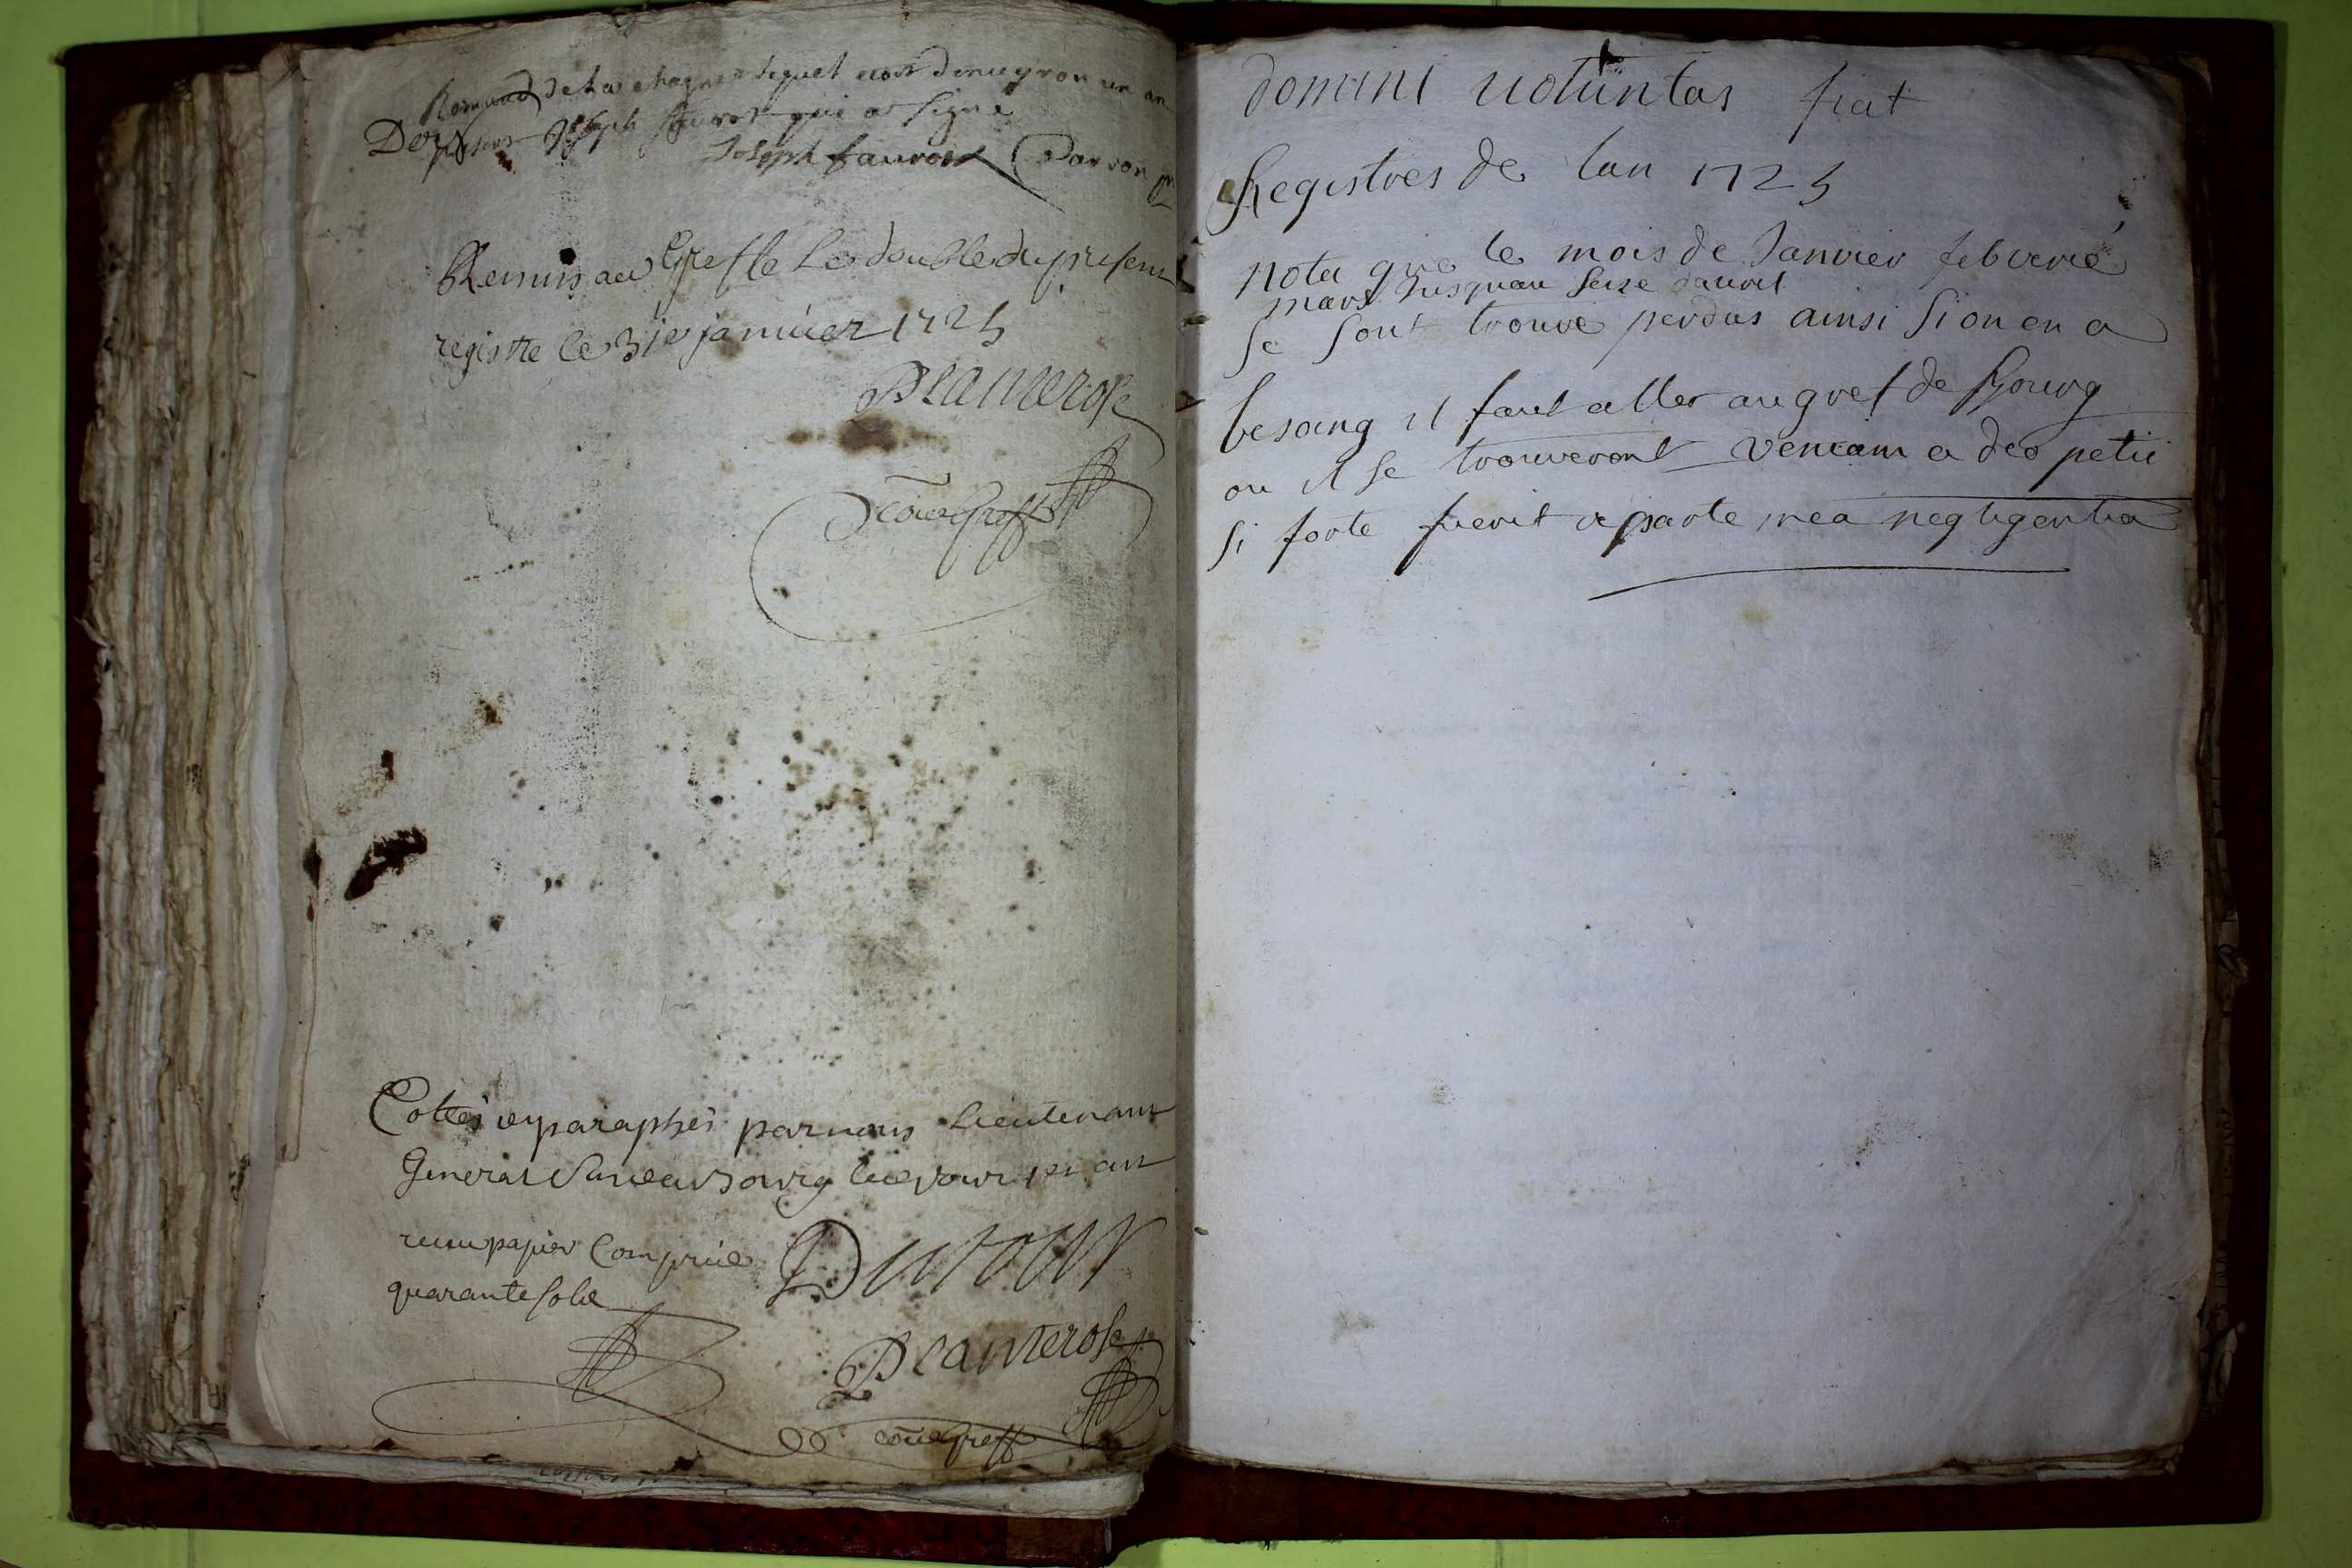 Romand de la chagne lequel etoit d'enuyron un an
presens Joseph faurost qui a signé
Joseph faurost
Remis au Greffe Le double du present
registre le 31e januier 1725
Blanterose
Com Greff
Cottes et paraphés par nous Lieutenant
General Bourg
papier Compris
quarante sols
Dufour
Blanterose
Com Greff
domini voluntas fiat
Registres de lan 1725
nota que le mois de Janvier febvrié
mars Jusquau seise dauril
se sont trouvé perdus ainsi si on en a
besoing il faut aller au gref de Bourg
ou il se trouveront veniam a deo petii
si forte fuerit a parte mea negligentia